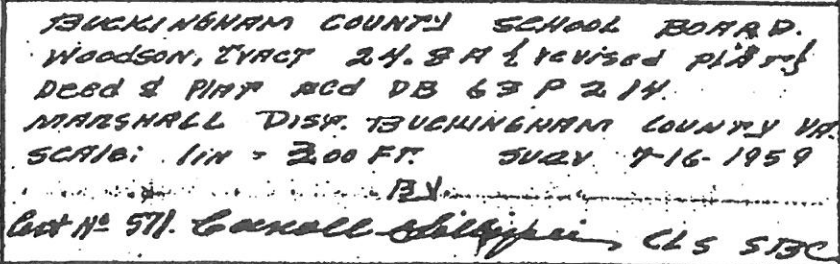 BUCKINGHAM COUNTY SCHOOL BOARD.
WOODSON, TRACT 24.8 A { revised PLAT }
Deed & PLAT Rcd DB 63 P 214.
MARSHALL DIST. BUCKINGHAM COUNTY VA.
SCALE: 1 IN = 300 FT. SURV 7-16-1959
BY
Cert Nº 571. Carroll CLS SBC